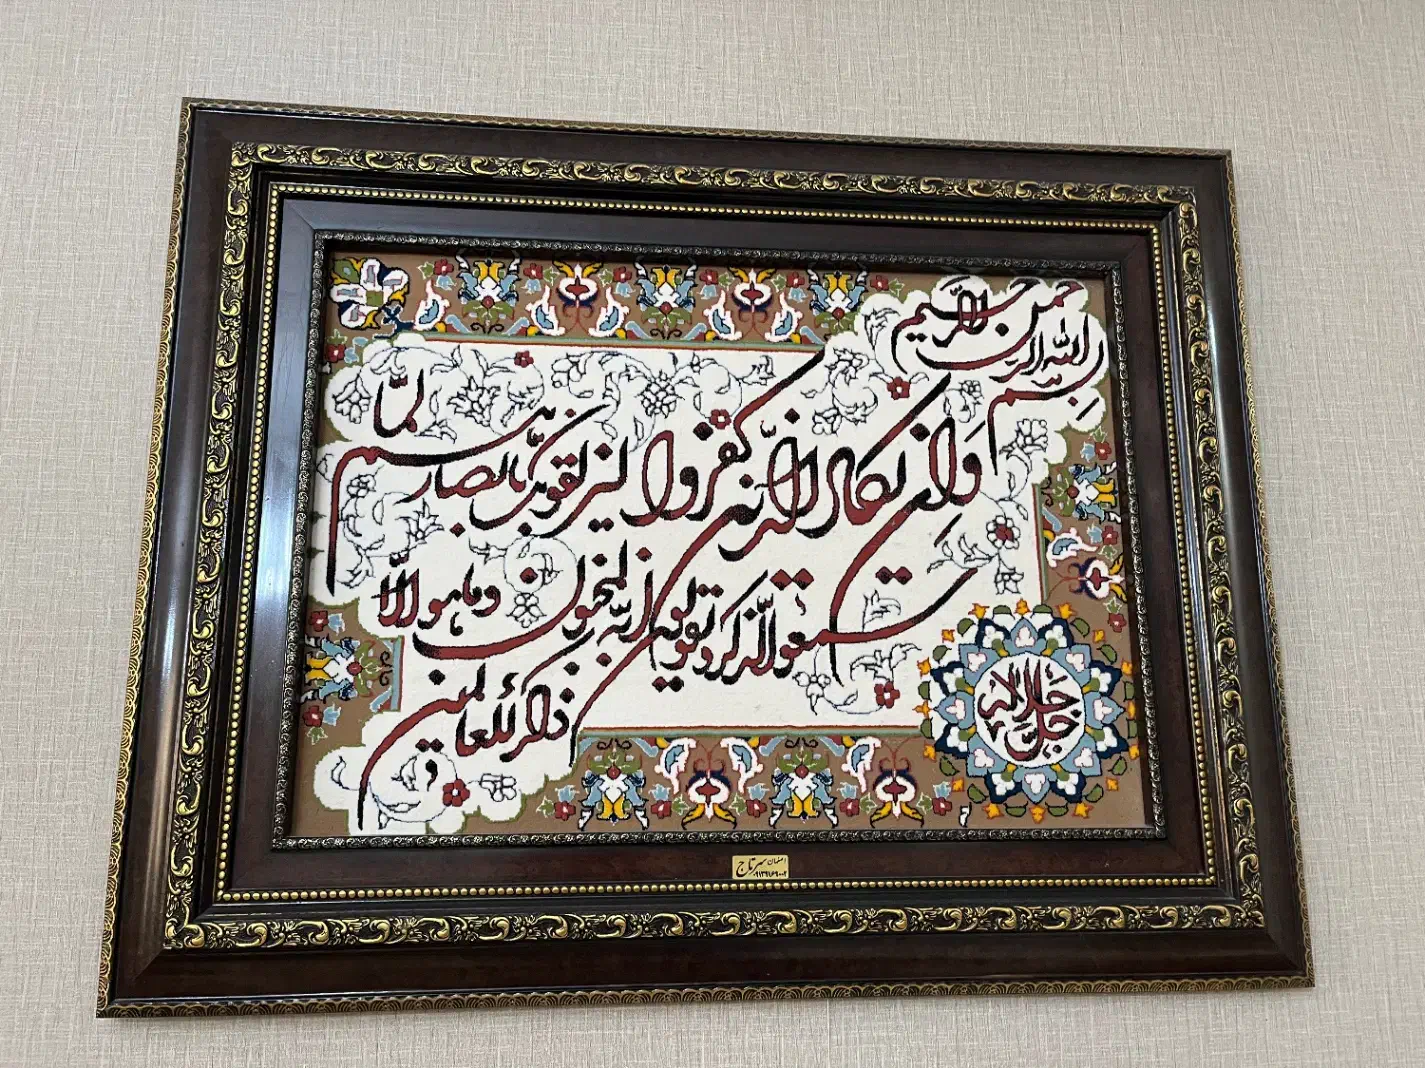 بسم الله الرحمن الرحیم
وَاِن یکاد الّذین کفروا لیزلقونک بابصارهم لمّا
سمعوا الذّکر و یقولون انّه لمجنون و ما هو الّا
ذکر للعالمین
جلّ جلاله
اصفهان سرتاج